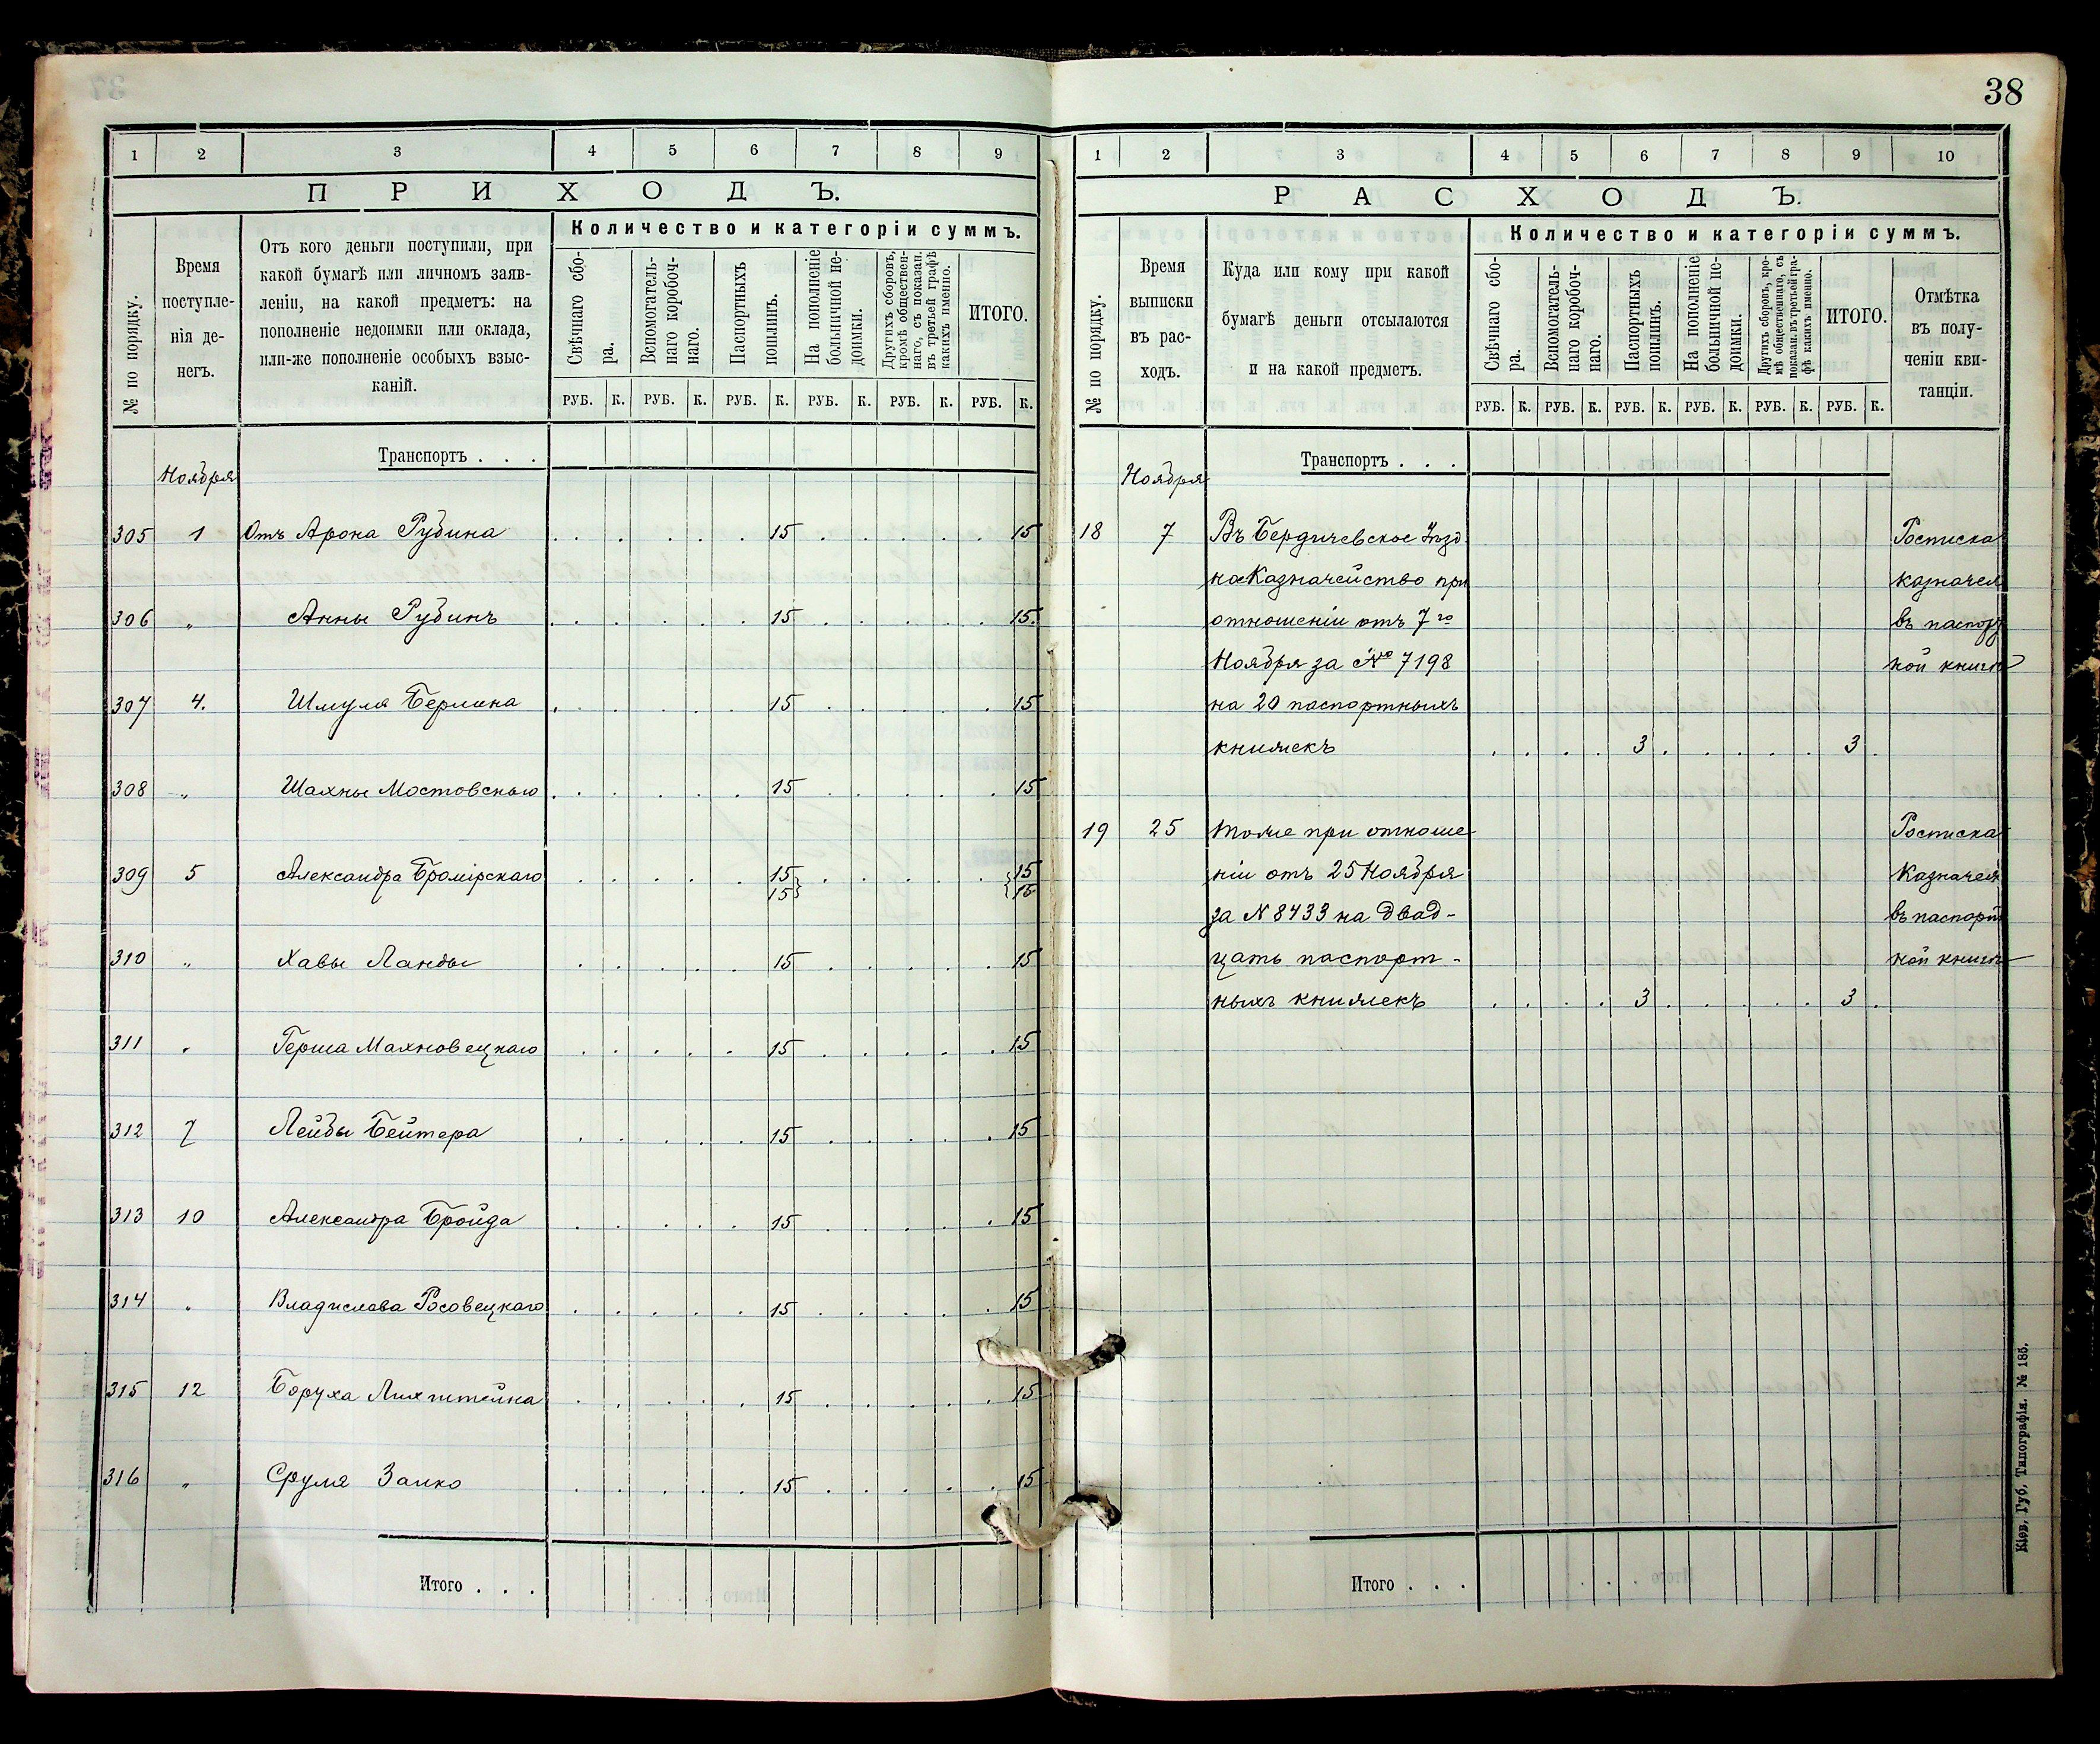 38
1 2 3 4 5 6 7 8 9
ПРИХОДЪ.
№ по порядку.
Время поступле-
нія де-
негъ.
Отъ кого деньги поступили, при
какой бумагѣ или личномъ заяв-
леніи, на какой предметъ: на
пополненіе недоимки или оклада,
или-же пополненіе особыхъ взыс-
каній.
Количество и категоріи суммъ.
Свѣчнаго сбо-
ра.
Вспомогатель-
наго коробоч-
наго.
Паспортныхъ
пошлинъ.
На пополненіе
больничной не-
доимки.
Другихъ сборовъ,
кромѣ обществен-
наго, съ показан.
въ третьей графѣ
какихъ именно.
ИТОГО.
РУБ. К. РУБ. К. РУБ. К. РУБ. К. РУБ. К. РУБ. К.
Транспортъ . . .
Ноября
305 1 Отъ Арона Рубина 15 15
306 „ Анны Рубинъ 15 15.
307 4. Шмуля Берлина 15 15
308 „ Шахны Мостовскаго 15 15
309 5 Александра Бромірскаго 15 15
15 15
310 „ Хавы Ланды 15 15
311 „ Герша Махновецкаго 15 15
312 7 Лейбы Бейтера 15 15
313 10 Александра Бройда 15 15
314 „ Владислава Росовецкаго 15 15
315 12 Боруха Лихштейна 15 15
316 „ Сруля Заико 15 15
Итого . . .
1 2 3 4 5 6 7 8 9 10
РАСХОДЪ.
№ по порядку.
Время
выписки
въ рас-
ходъ.
Куда или кому при какой
бумагѣ деньги отсылаются
и на какой предметъ.
Количество и категоріи суммъ.
Свѣчнаго сбо-
ра.
Вспомогатель-
наго коробоч-
наго.
Паспортныхъ
пошлинъ.
На пополненіе
больничной не-
доимки.
Другихъ сборовъ, кро-
мѣ общественнаго, съ
показан. въ третьей гра-
фѣ какихъ именно.
ИТОГО.
Отмѣтка
въ полу-
ченіи кви-
танціи.
РУБ. К. РУБ. К. РУБ. К. РУБ. К. РУБ. К. РУБ. К.
Транспортъ . . .
Ноября
18 7 Въ Бердичевское Уѣзд. Росписка
ное Казначейство при казначея
отношеніи отъ 7го въ паспорт
Ноября за № 7198 ной книгѣ
на 20 паспортныхъ
книжекъ 3 3
19 25 тоже при отноше Росписка
ніи отъ 25 Ноября Казначея
за N 8433 на двад- въ паспорт
цать паспорт- ной книгѣ
ныхъ книжекъ 3 3
Итого . . .
Кіев, Губ. Типографія. № 185.